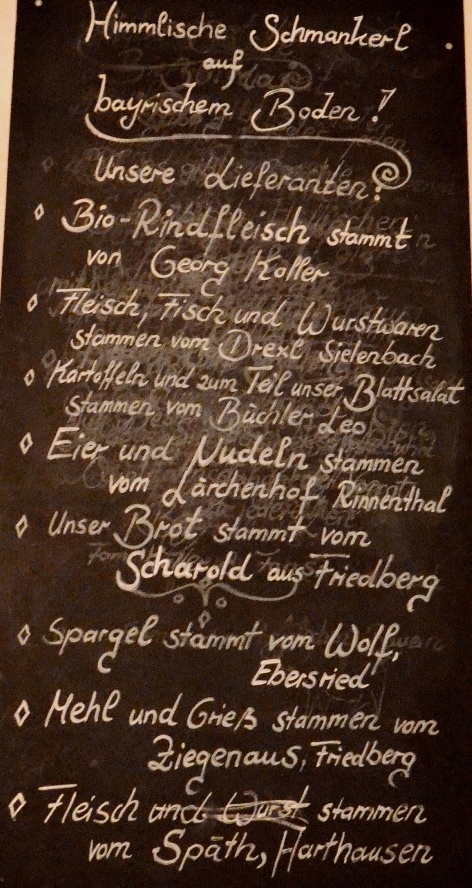 Himmlische Schmankerl
auf
bayrischem Boden!
Unsere Lieferanten:
◇ Bio-Rindfleisch stammt
von Georg Koller
◇ Fleisch, Fisch und Wurstwaren
stammen vom Drexl Sielenbach
◇ Kartoffeln und zum Teil unser Blattsalat
stammen vom Büchler Leo
◇ Eier und Nudeln stammen
vom Lärchenhof Rinnenthal
◇ Unser Brot stammt vom
Scharold aus Friedberg
◇ Spargel stammt vom Wolf,
Ebersried
◇ Mehl und Grieß stammen vom
Ziegenaus, Friedberg
◇ Fleisch und Wurst stammen
vom Späth, Harthausen